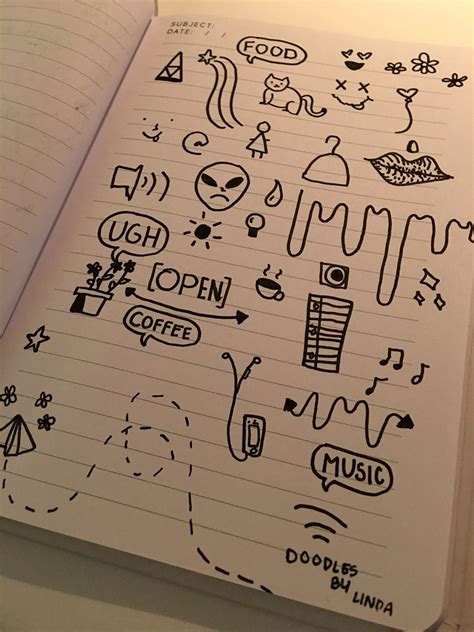 SUBJECT:
DATE: / /
FOOD
@
UGH
[OPEN]
COFFEE
MUSIC
DOODLES
BY LINDA